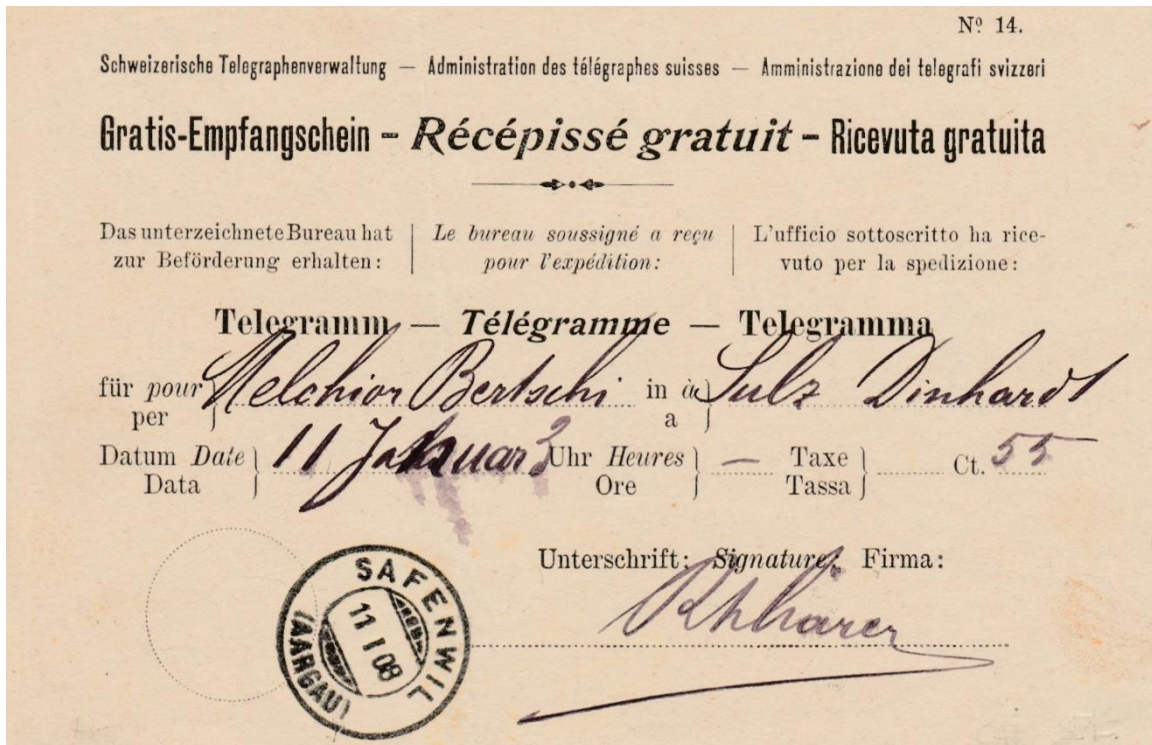 Nº 14.
Schweizerische Telegraphenverwaltung — Administration des télégraphes suisses — Amministrazione dei telegrafi svizzeri
Gratis-Empfangschein - Récépissé gratuit - Ricevuta gratuita
Das unterzeichnete Bureau hat zur Beförderung erhalten:
Le bureau soussigné a reçu pour l'expédition:
L'ufficio sottoscritto ha ricevuto per la spedizione:
Telegramm — Télégramme — Telegramma
für pour per } Melchior Bertschi in à a } Sulz Dinhardt
Datum Date Data } 11 Januar 3 Uhr Heures Ore } — Taxe Tassa } Ct. 55
Unterschrift: Signature: Firma:
SAFENWIL
11 I 08
(AARGAU)